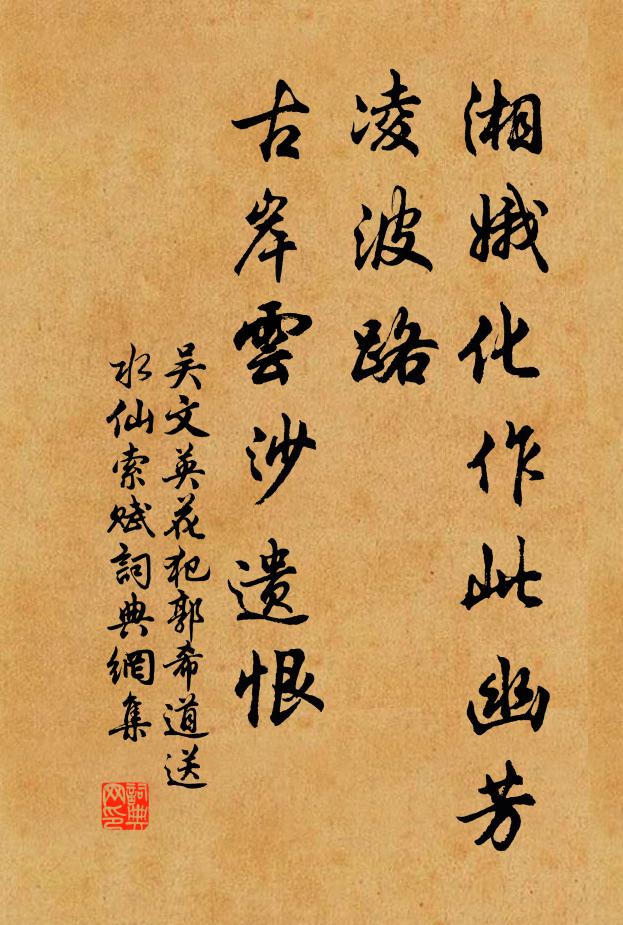 湘娥化作此幽芳
凌波路
古岸雲沙遺恨
吴文英花犯郭希道送
水仙索赋詞典網集
詞典网印